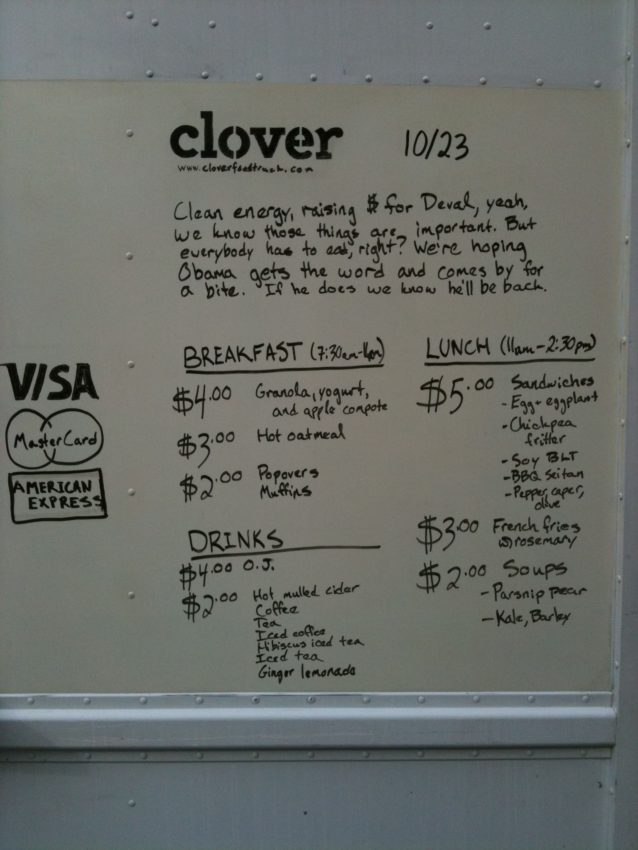 clover
10/23
www.cloverfoodtruck.com
Clean energy, raising $ for Deval, yeah,
we know those things are important. But
everybody has to eat, right? We're hoping
Obama gets the word and comes by for
a bite. If he does we know he'll be back.
VISA
MasterCard
AMERICAN
EXPRESS
BREAKFAST (7:30am-11am)
$4.00 Granola, yogurt,
and apple compote
$3.00 Hot oatmeal
$2.00 Popovers
Muffins
DRINKS
$4.00 O.J.
$2.00 Hot mulled cider
Coffee
Tea
Iced coffee
Hibiscus iced tea
Iced tea
Ginger lemonade
LUNCH (11am-2:30pm)
$5.00 Sandwiches
- Egg + eggplant
- Chickpea
fritter
- Soy BLT
- BBQ Seitan
- Pepper, caper,
olive
$3.00 French fries
w/rosemary
$2.00 Soups
- Parsnip pear
- Kale, Barley